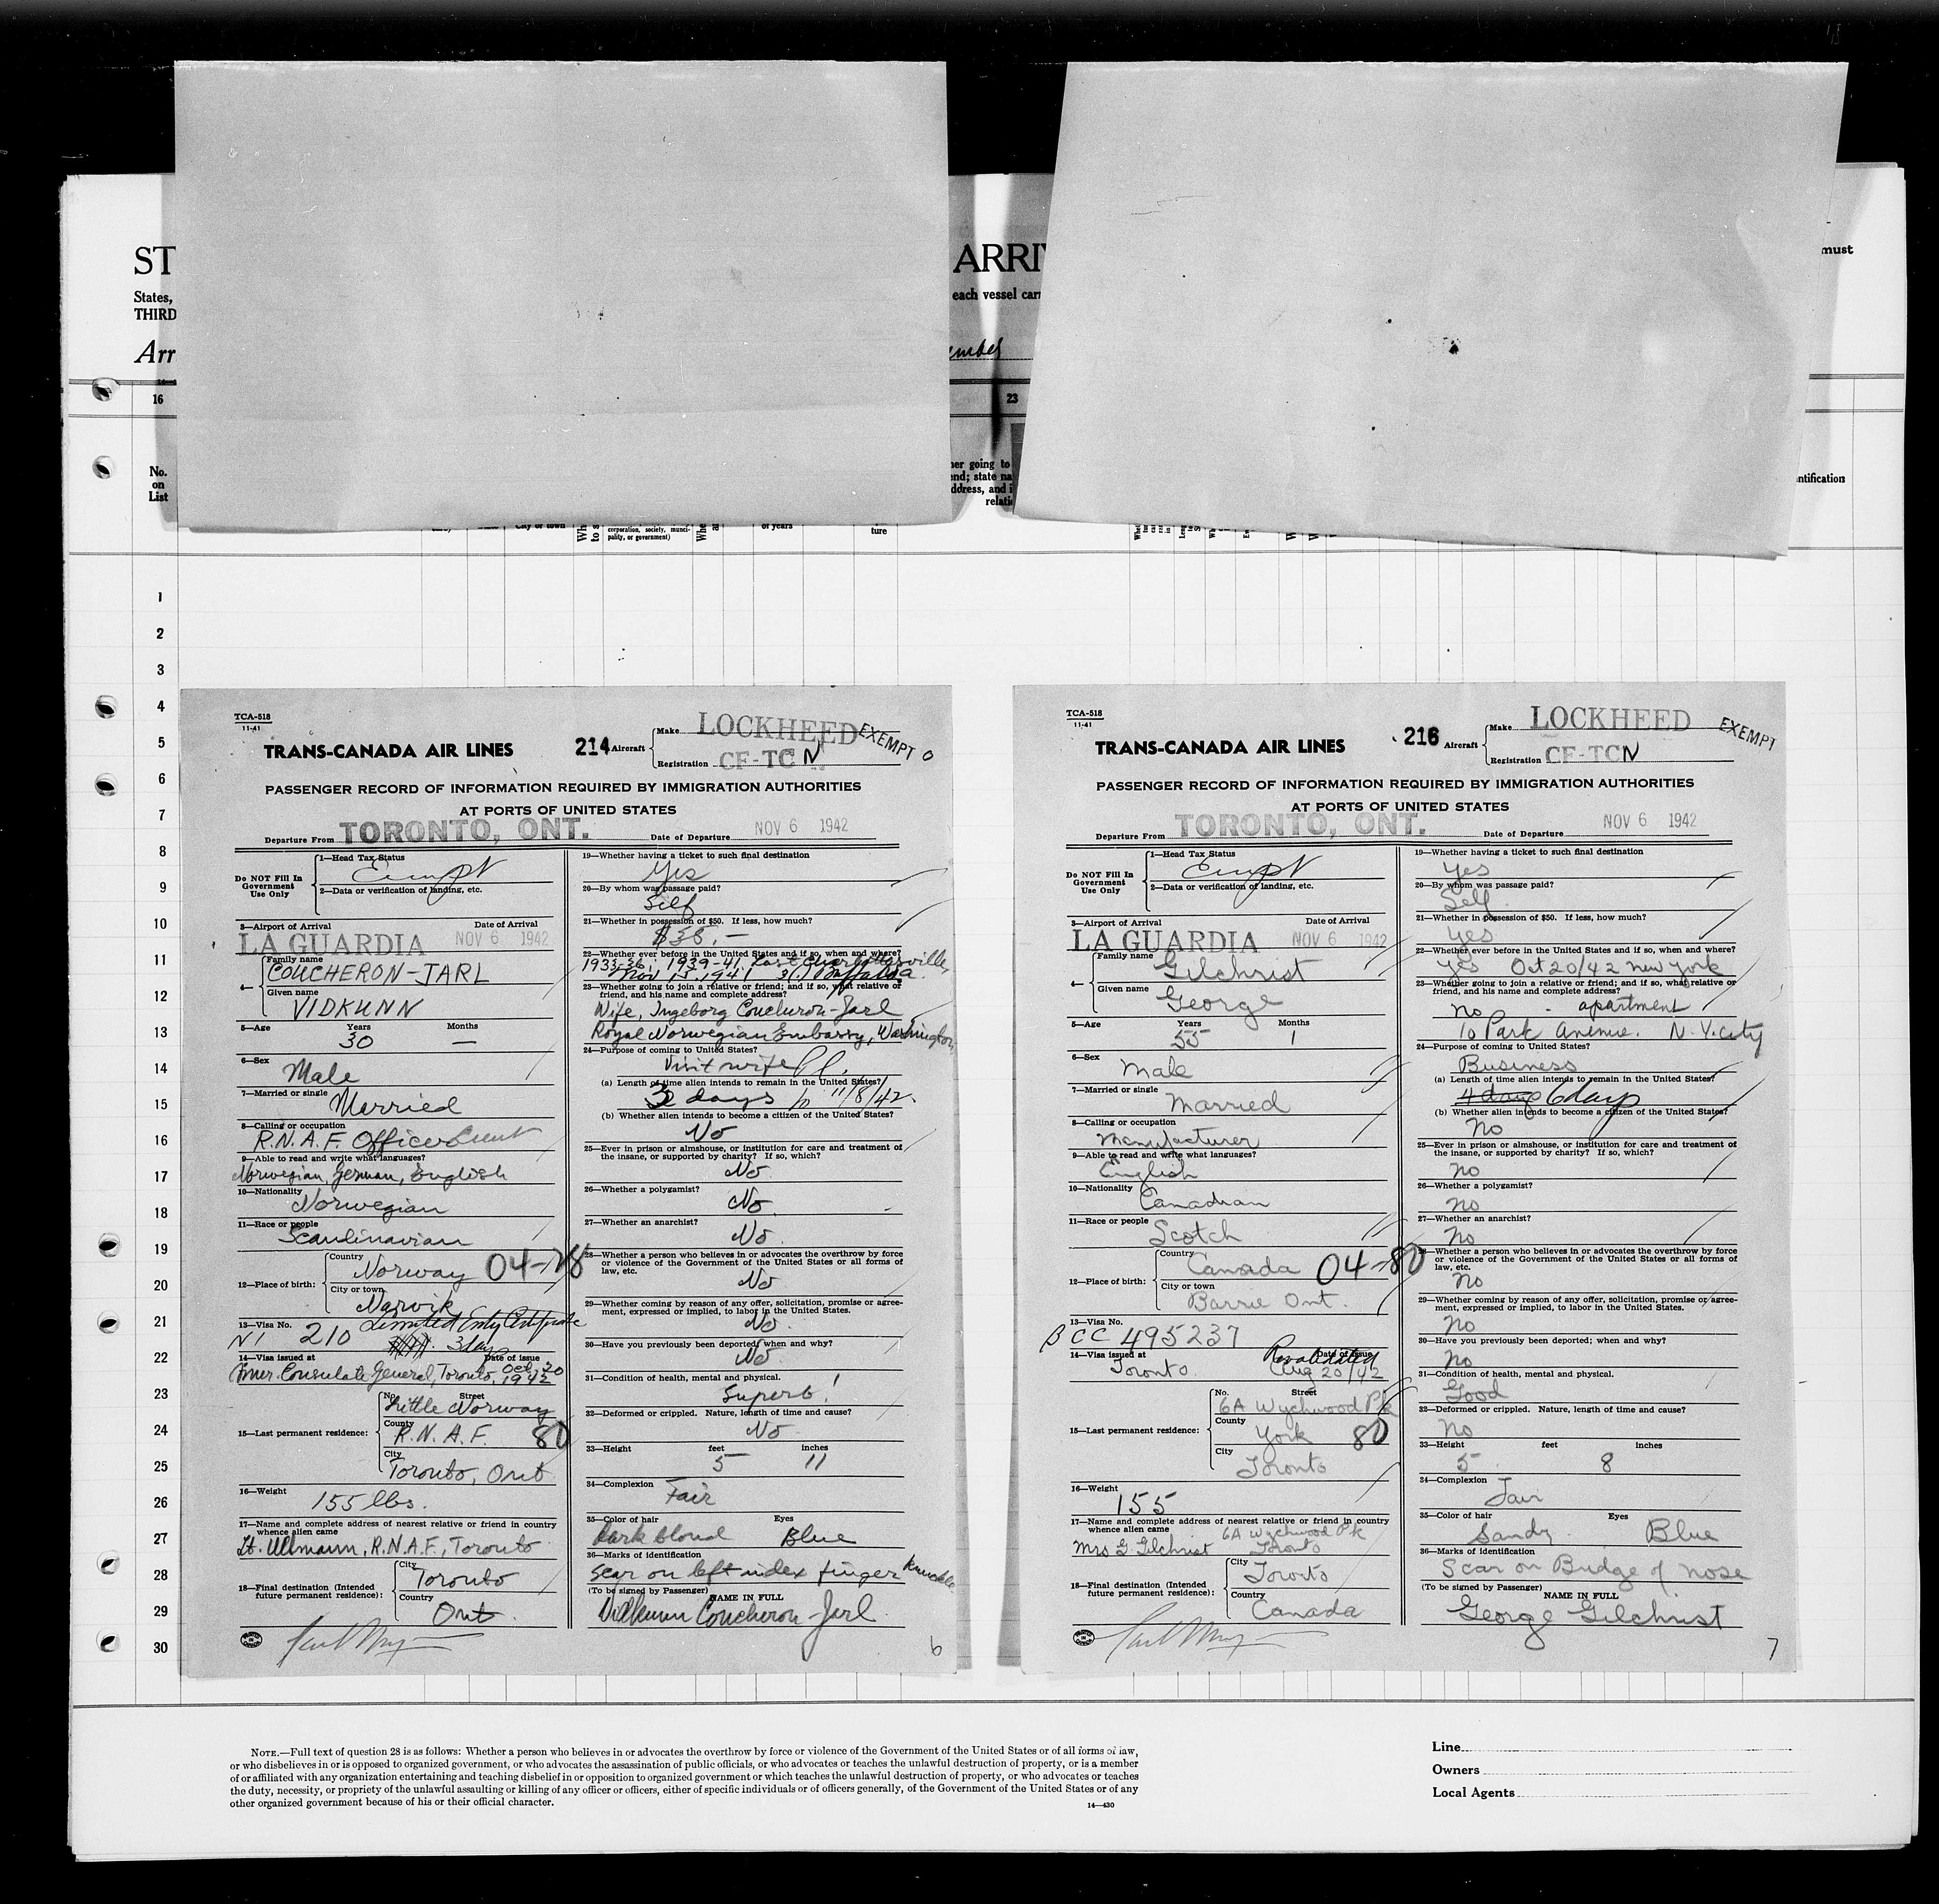 ST
ARRI
must
States,
each vessel car
THIRD
Arr
ember
16
23
No.
on
List
her going to
end; state na
ddress, and i
relati
ntification
City or town
corporation, society, munci-
pality, or government)
of years
ture
1
2
3
4
5
6
7
8
9
10
11
12
13
14
15
16
17
18
19
20
21
22
23
24
25
26
27
28
29
30
TCA-518
11-41
TRANS-CANADA AIR LINES
214 Aircraft
Make LOCKHEED
Registration CF-TCN
EXEMPT
PASSENGER RECORD OF INFORMATION REQUIRED BY IMMIGRATION AUTHORITIES
AT PORTS OF UNITED STATES
Departure From TORONTO, ONT. Date of Departure NOV 6 1942
Do NOT Fill In
Government
Use Only
1—Head Tax Status
Exempt
2—Data or verification of landing, etc.
3—Airport of Arrival Date of Arrival
LA GUARDIA NOV 6 1942
4— Family name
COUCHERON-JARL
Given name
VIDKUNN
5—Age Years Months
30 —
6—Sex
Male
7—Married or single
Married
8—Calling or occupation
R.N.A.F. Officer
9—Able to read and write what languages?
Norwegian, German, English
10—Nationality
Norwegian
11—Race or people
Scandinavian
12—Place of birth: Country
Norway 04-
City or town
Narvik
13—Visa No. Limited Entry Certificate
210 3 days
14—Visa issued at Date of issue
Amer. Consulate General, Toronto, Oct. 20 1942
15—Last permanent residence: No. Street
Little Norway
County
R.N.A.F. 80
City
Toronto, Ont
16—Weight
155 lbs.
17—Name and complete address of nearest relative or friend in country
whence alien came
Lt. Ullmann, R.N.A.F., Toronto
18—Final destination (Intended
future permanent residence): City
Toronto
Country
Ont.
19—Whether having a ticket to such final destination
Yes
20—By whom was passage paid?
Self
21—Whether in possession of $50. If less, how much?
$38.—
22—Whether ever before in the United States and if so, when and where?
1933-36; 1939-41 Last Charlottesville,
Nov 15, 1941 Buffalo
23—Whether going to join a relative or friend; and if so, what relative or
friend, and his name and complete address?
Wife, Ingeborg Coucheron-Jarl
Royal Norwegian Embassy, Washington
24—Purpose of coming to United States?
Visit wife
(a) Length of time alien intends to remain in the United States?
3 days to 11/8/42.
(b) Whether alien intends to become a citizen of the United States?
No
25—Ever in prison or almshouse, or institution for care and treatment of
the insane, or supported by charity? If so, which?
No
26—Whether a polygamist?
No
27—Whether an anarchist?
No
28—Whether a person who believes in or advocates the overthrow by force
or violence of the Government of the United States or all forms of
law, etc.
No
29—Whether coming by reason of any offer, solicitation, promise or agree-
ment, expressed or implied, to labor in the United States.
No
30—Have you previously been deported, when and why?
No
31—Condition of health, mental and physical.
Superb!
32—Deformed or crippled. Nature, length of time and cause?
No
33—Height feet inches
5 11
34—Complexion
Fair
35—Color of hair Eyes
Dark blond Blue
36—Marks of identification
Scar on left index finger knuckle
(To be signed by Passenger) NAME IN FULL
Vidkunn Coucheron-Jarl
6
TCA-518
11-41
TRANS-CANADA AIR LINES
216 Aircraft
Make LOCKHEED
Registration CF-TCN
EXEMPT
PASSENGER RECORD OF INFORMATION REQUIRED BY IMMIGRATION AUTHORITIES
AT PORTS OF UNITED STATES
Departure From TORONTO, ONT. Date of Departure NOV 6 1942
Do NOT Fill In
Government
Use Only
1—Head Tax Status
Exempt
2—Data or verification of landing, etc.
3—Airport of Arrival Date of Arrival
LA GUARDIA NOV 6 1942
4— Family name
Gilchrist
Given name
George
5—Age Years Months
55 1
6—Sex
Male
7—Married or single
Married
8—Calling or occupation
Manufacturer
9—Able to read and write what languages?
English
10—Nationality
Canadian
11—Race or people
Scotch
12—Place of birth: Country
Canada 04-80
City or town
Barrie Ont.
13—Visa No.
BCC 495237
14—Visa issued at Date of issue
Toronto Revalidated Aug 20/42
15—Last permanent residence: No. Street
6A Wychwood Pk
County
York 80
City
Toronto
16—Weight
155
17—Name and complete address of nearest relative or friend in country
whence alien came 6A Wychwood Pk
Mrs G. Gilchrist Toronto
18—Final destination (Intended
future permanent residence): City
Toronto
Country
Canada
19—Whether having a ticket to such final destination
Yes
20—By whom was passage paid?
Self
21—Whether in possession of $50. If less, how much?
Yes
22—Whether ever before in the United States and if so, when and where?
Yes Oct 20/42 New York
23—Whether going to join a relative or friend; and if so, what relative or
friend, and his name and complete address?
No - apartment
10 Park Avenue. N.Y. City
24—Purpose of coming to United States?
Business
(a) Length of time alien intends to remain in the United States?
4 days 6 days
(b) Whether alien intends to become a citizen of the United States?
No
25—Ever in prison or almshouse, or institution for care and treatment of
the insane, or supported by charity? If so, which?
No
26—Whether a polygamist?
No
27—Whether an anarchist?
No
28—Whether a person who believes in or advocates the overthrow by force
or violence of the Government of the United States or all forms of
law, etc.
No
29—Whether coming by reason of any offer, solicitation, promise or agree-
ment, expressed or implied, to labor in the United States.
No
30—Have you previously been deported; when and why?
No
31—Condition of health, mental and physical.
Good
32—Deformed or crippled. Nature, length of time and cause?
No
33—Height feet inches
5 8
34—Complexion
Fair
35—Color of hair Eyes
Sandy Blue
36—Marks of identification
Scar on Bridge of nose
(To be signed by Passenger) NAME IN FULL
George Gilchrist
7
NOTE.—Full text of question 28 is as follows: Whether a person who believes in or advocates the overthrow by force or violence of the Government of the United States or of all forms of law,
or who disbelieves in or is opposed to organized government, or who advocates the assassination of public officials, or who advocates or teaches the unlawful destruction of property, or is a member
of or affiliated with any organization entertaining and teaching disbelief in or opposition to organized government or which teaches the unlawful destruction of property, or who advocates or teaches
the duty, necessity, or propriety of the unlawful assaulting or killing of any officer or officers, either of specific individuals or of officers generally, of the Government of the United States or of any
other organized government because of his or their official character.
14—430
Line
Owners
Local Agents